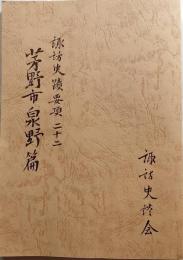 諏訪史蹟要項 二十二
茅野市泉野篇
諏訪史談会